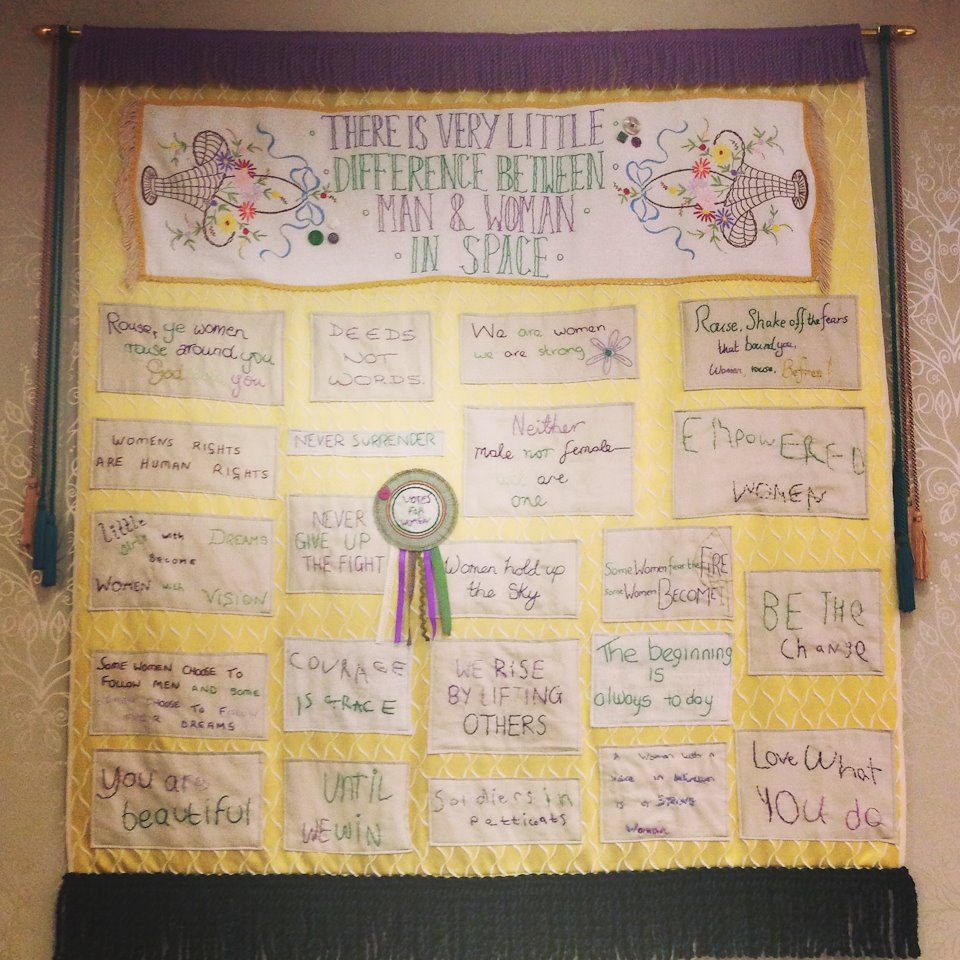 THERE IS VERY LITTLE
DIFFERENCE BETWEEN
MAN & WOMAN
IN SPACE
Rouse, ye women
rouse around you
God you
DEEDS
NOT
WORDS.
We are women
we are strong
Rouse, Shake off the fears
that bound you,
Women, rouse, Before!
WOMENS RIGHTS
ARE HUMAN RIGHTS
NEVER SURRENDER
Neither
male not female
are
one
EMPOWERED
WOMEN
Little
girls with DREAMS
BECOME
WOMEN with VISION
NEVER
GIVE UP
THE FIGHT
VOTES
FOR
WOMEN
Women hold up
the Sky
Some Women fear the FIRE
Some Women BECOME IT
BE THE
Change
SOME WOMEN CHOOSE TO
FOLLOW MEN AND SOME
CHOOSE TO FOLLOW
THEIR DREAMS
COURAGE
IS GRACE
WE RISE
BY LIFTING
OTHERS
The beginning
is
always today
you are
beautiful
UNTIL
WE WIN
Soldiers in
petticoats
A Woman with a
voice is
is a STRONG
Woman
Love What
YOU do